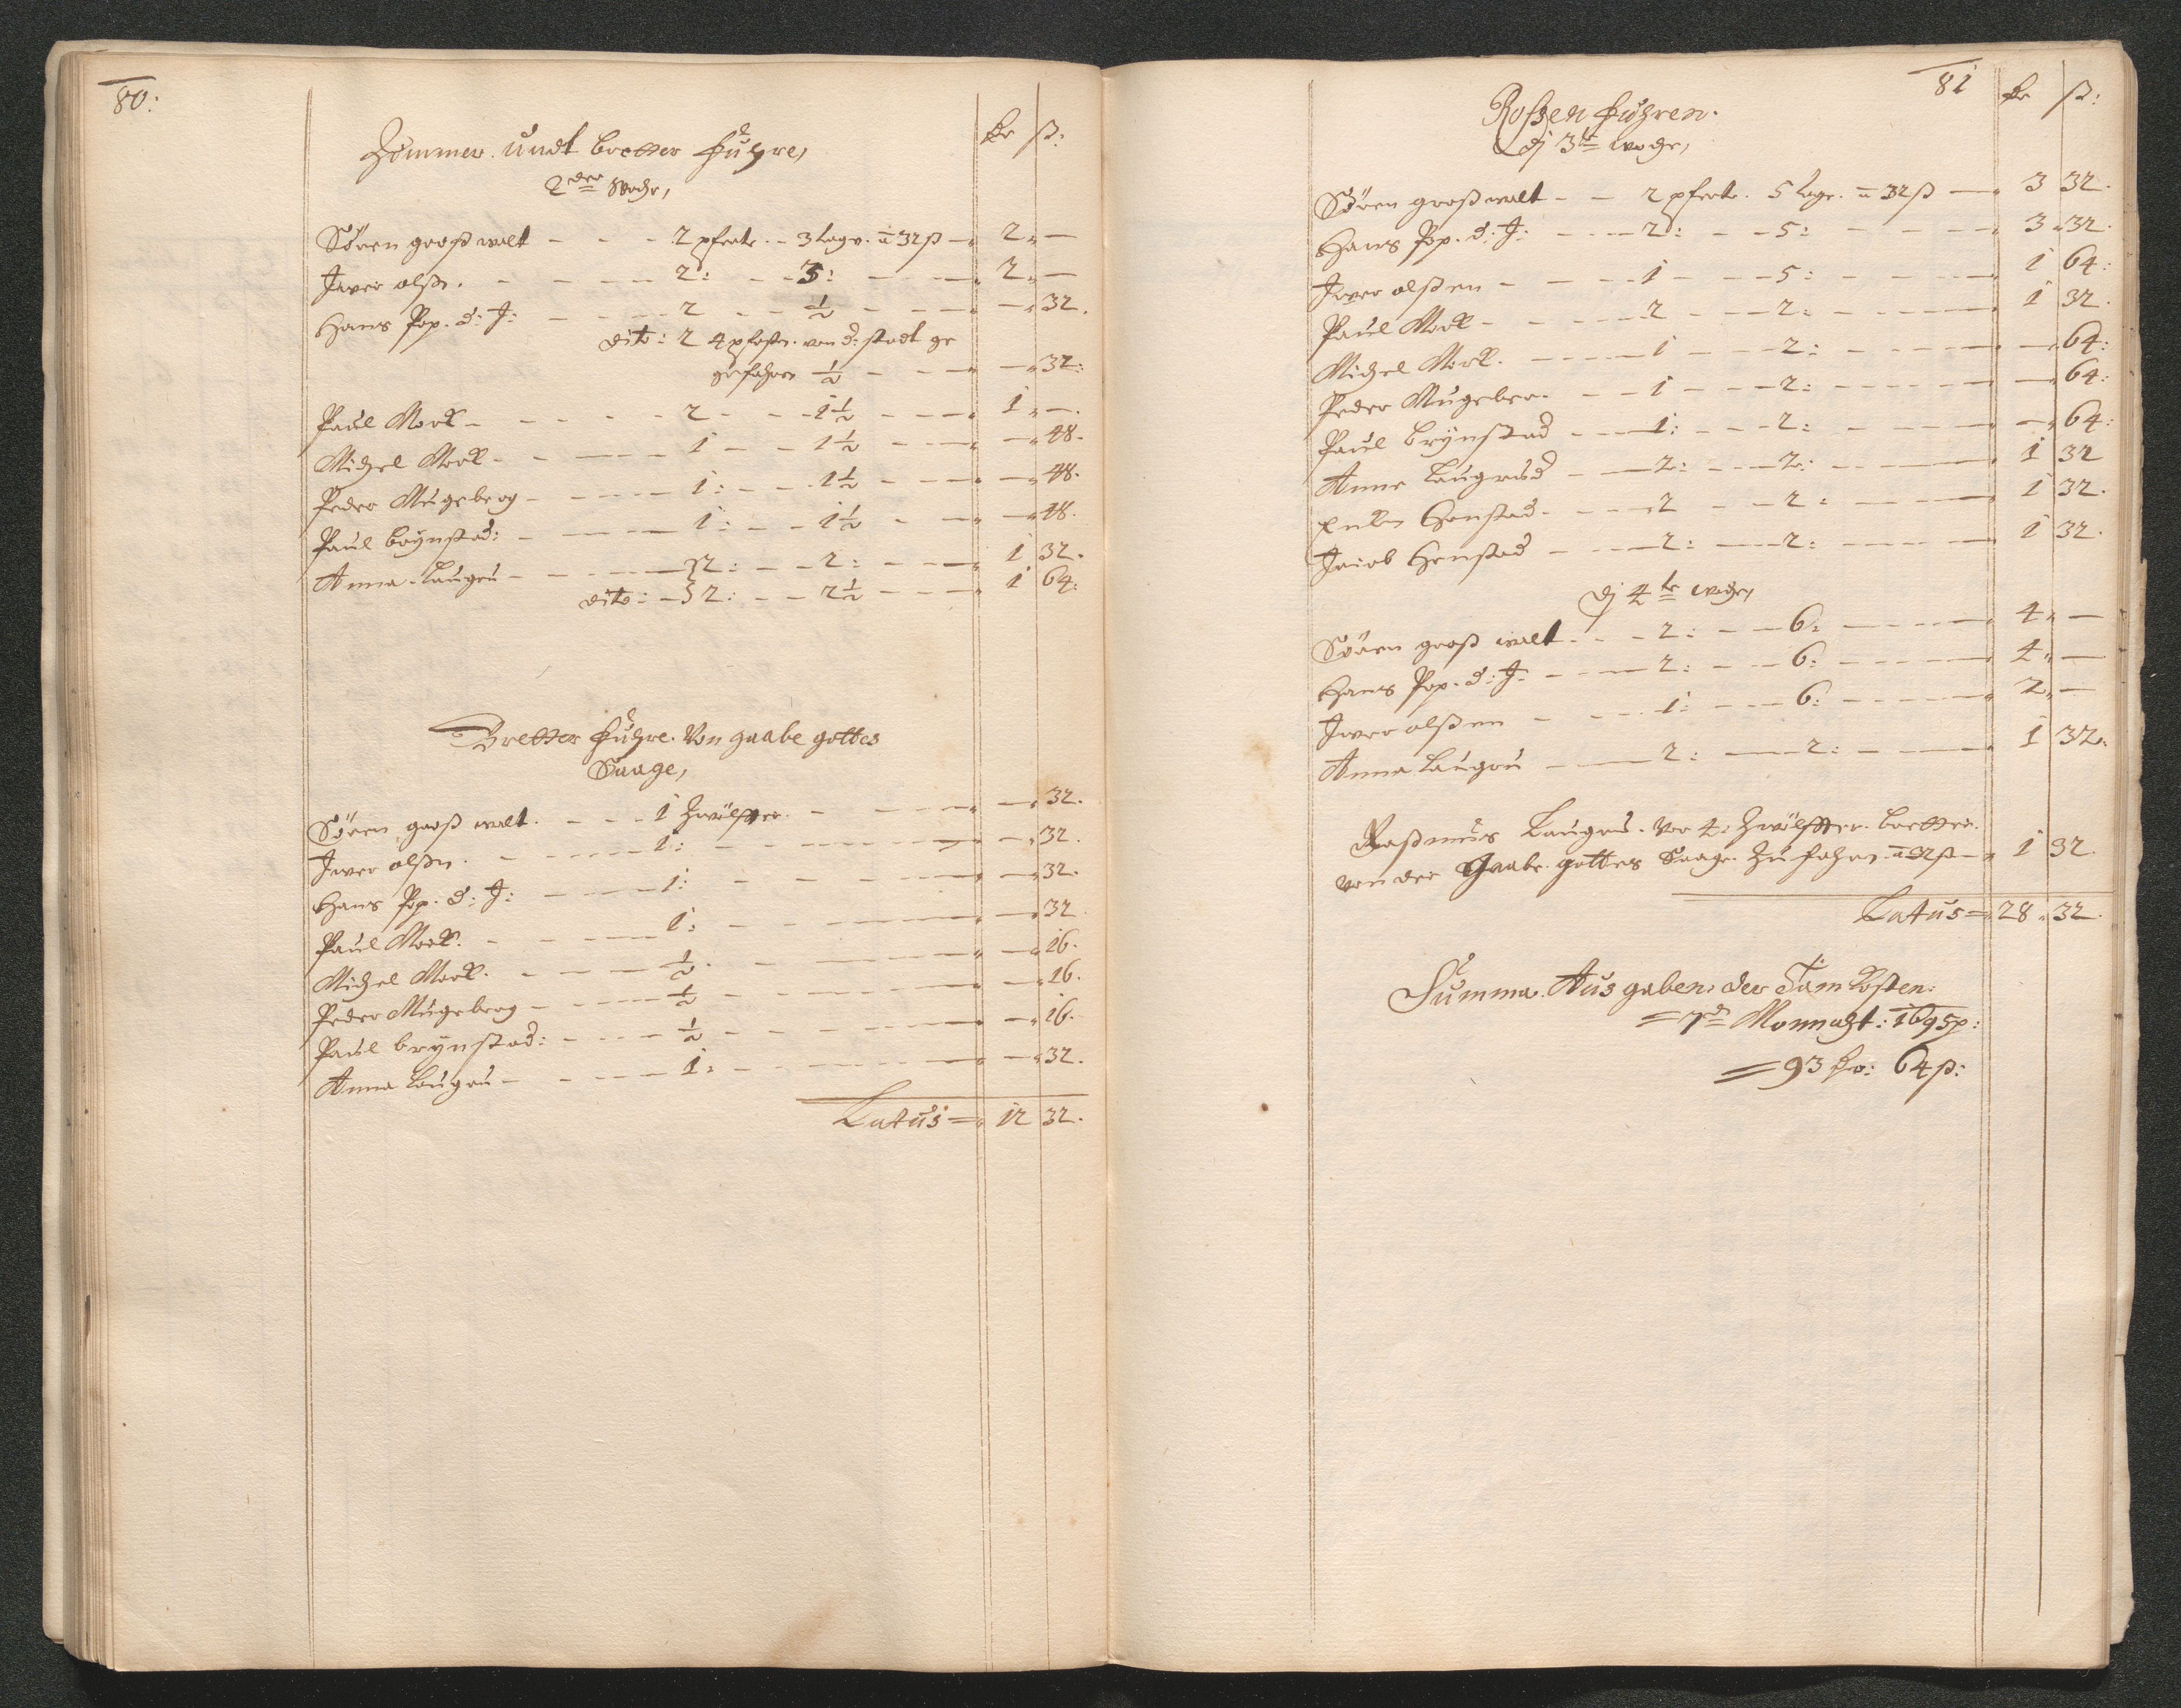 80:
Zimmer. undt bretter fuhre,
2der Woche,
ß:
Sören großwalt - - - 2 pferte. - 3 tage. a 32 ß - 2 -
Jwer olßn. - - - 2: - - 3: - - 2 -
Hans Pop. d: J: - - - 2 - - ½ - - - 32.
dito: 2 4 pferte. von d: stadt ge
gefahren ½ - - - 32:
Paul Mork - - - 2 - - 1½ - - 1 -.
Michel Mork - - - 1 - - 1½ - - - 48.
Peder Mugeberg - - - 1: - - 1½ - - - 48.
Paul brÿnstad: - - - 1: - - 1½ - - - 48.
Anna Laugru - - - 2: - - 2: - - 1 32.
dito: - 2: - - 2½ - - 1 64:
Bretter fuhre. Von gaabe gottes
Saage,
Sören großwalt. - - - 1 Zwölffter. - - - 32.
Jwer olßn. - - - 1: - - - 32.
Hans Pop. d: J: - - - 1: - - - 32.
Paul Mork. - - - 1: - - - 32.
Michel Mork. - - - ½. - - - 16.
Peder Mugeberg - - - ½ - - - 16.
Paul brÿnstad: - - - ½ - - - 16.
Anna Laugru - - - 1: - - - 32.
Latus = 12 32.
81
Roßen fuhren.
ß:
Dj 3te woche,
Sören großwalt - - 2 pferte. 5 tage. a 32 ß - 3 32.
Hans Pop. d: J: - - - 2: - - 5: - - 3 32.
Jwer olßen - - - 1 - - 5: - - 1 64:
Paul Mork - - - 2 - - 2: - - 1 32.
Michel Mork. - - - 1 - - 2: - - - 64:
Peder Mugeber. - - - 1 - - 2: - - - 64:
Paul brÿnstad - - - 1: - - 2: - - - 64:
Anne Laugrud - - - 2: - - 2: - - 1 32
Honstad - - - 2 - - 2: - - 1 32.
Jacob Honstad - - - 2: - - 2: - - 1 32.
Dj 4te woche,
Sören groß walt - - - 2: - - 6: - - 4 -
Hans Pop. d: J: - - - 2: - - 6: - - 4 -
Jwer olßen - - - 1: - - 6: - - 2 -
Anna Laugru - - - 2: - - 2: - - 1 32.
Raßmus Laugru. vor 4: Zwölffter. bretter.
von der Gaabe gottes Saage. zu fahren a 32 ß - 1 32.
Latus = 28 32.
Summa Ausgaben. der Dam Kosten:
= 7d Monnaht: 1695:
= 93 64 ß: